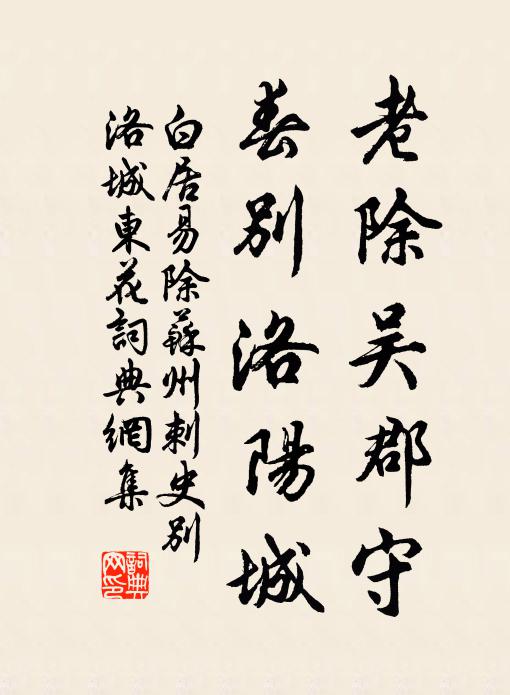 老除吴郡守
春別洛陽城
白居易除蘇州刺史別
洛城東花詞典網集
詞典
网印